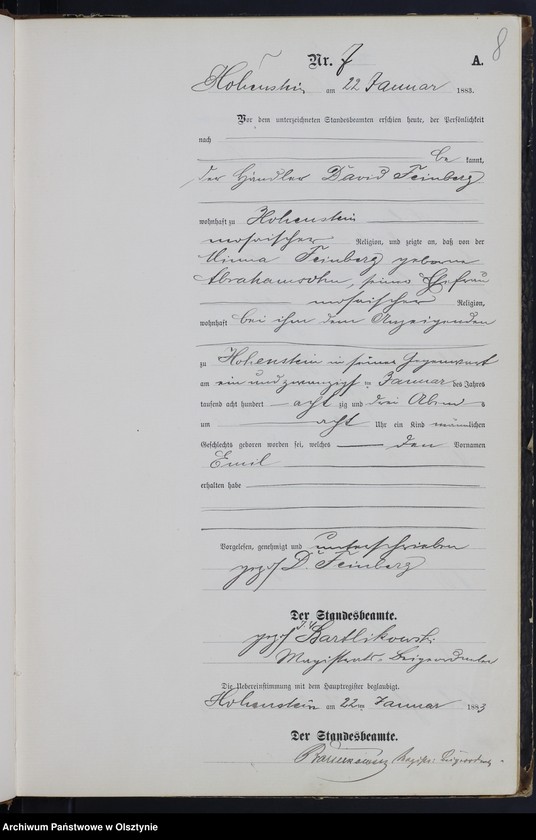 8
Nr. 7 A.
Hohenstein am 22 Januar 1883.
Vor dem unterzeichneten Standesbeamten erschien heute, der Persönlichkeit
nach
be kannt,
der Händler David Feinberg
wohnhaft zu Hohenstein
mosaischer Religion, und zeigte an, daß von der
Minna Feinberg geborne
seiner Ehefrau
mosaischer Religion,
wohnhaft bei ihm dem Anzeigenden
zu Hohenstein in seiner Gegenwart
am ein und zwanzigsten Januar des Jahres
tausend acht hundert acht zig und drei Abend s
um acht Uhr ein Kind männlichen
Geschlechts geboren worden sei, welches den Vornamen
Emil
erhalten habe
Vorgelesen, genehmigt und unterschrieben
gez. D. Feinberg
Der Standesbeamte.
gez. Bartlikowski
Magistrats-Beigeordneter
Die Uebereinstimmung mit dem Hauptregister beglaubigt.
Hohenstein am 22ten Januar 1883
Der Standesbeamte.
Archiwum Państwowe w Olsztynie